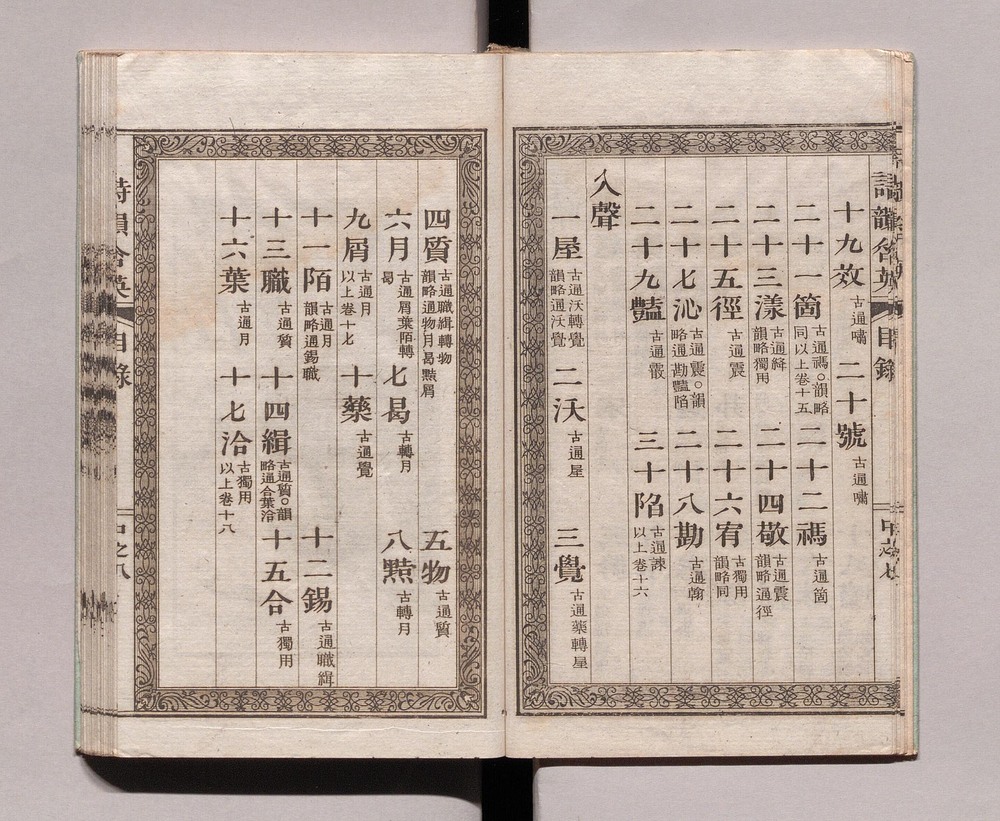 詩韻含英 目錄 中之七
十九效 古通嘯 二十號 古通嘯
二十一箇 古通禡○韻略同以上卷十五 二十二禡 古通箇
二十三漾 古通絳韻略獨用 二十四敬 古通震韻略通徑
二十五徑 古通震 二十六宥 古獨用韻略同
二十七沁 古通震○韻略通勘豔陷 二十八勘 古通翰
二十九豔 古通霰 三十陷 古通諫以上卷十六
入聲
一屋 古通沃轉覺韻略通沃覺 二沃 古通屋 三覺 古通藥轉屋
四質 古通職緝轉物韻略通物月曷黠屑 五物 古通質
六月 古通屑葉陌轉曷 七曷 古轉月 八黠 古轉月
九屑 古通月以上卷十七 十藥 古通覺
十一陌 古通月韻略通錫職 十二錫 古通職緝
十三職 古通質 十四緝 古通質○韻略通合葉洽 十五合 古獨用
十六葉 古通月 十七洽 古獨用以上卷十八
詩韻含英 目錄 中之八